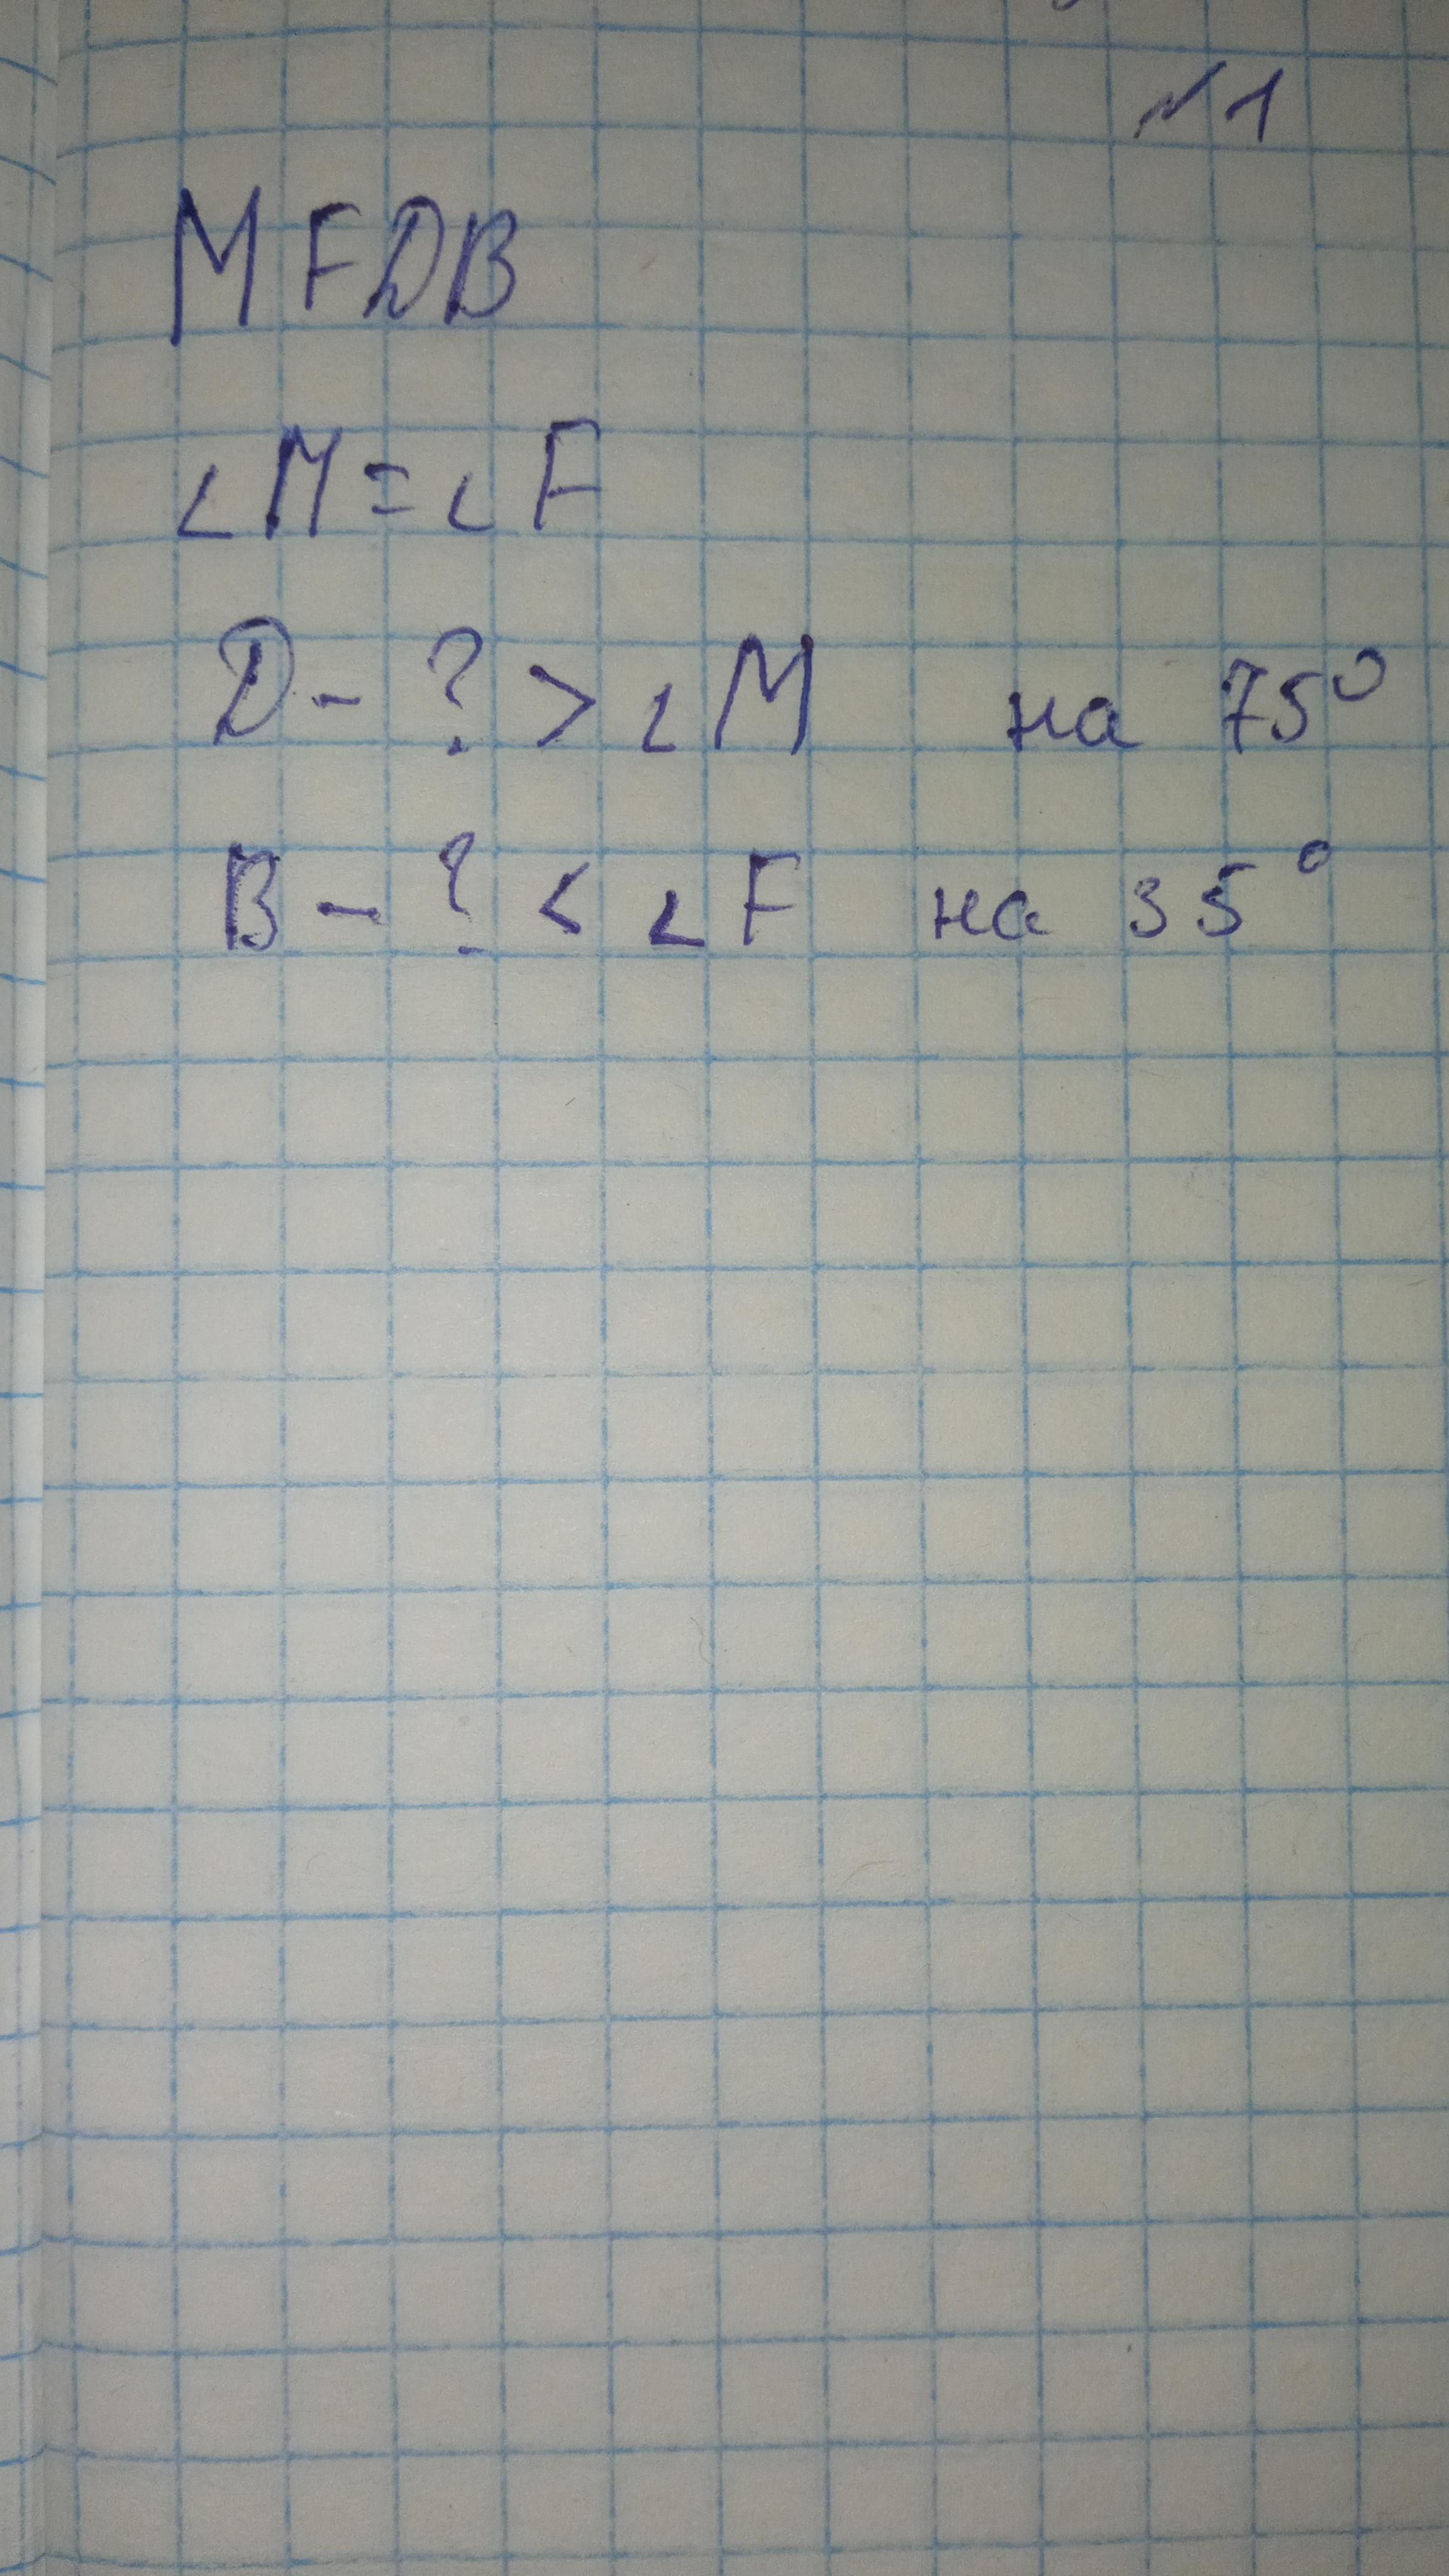 №1
MFDB
∠M=∠F
D-?>∠M на 75°
B-?<∠F на 35°